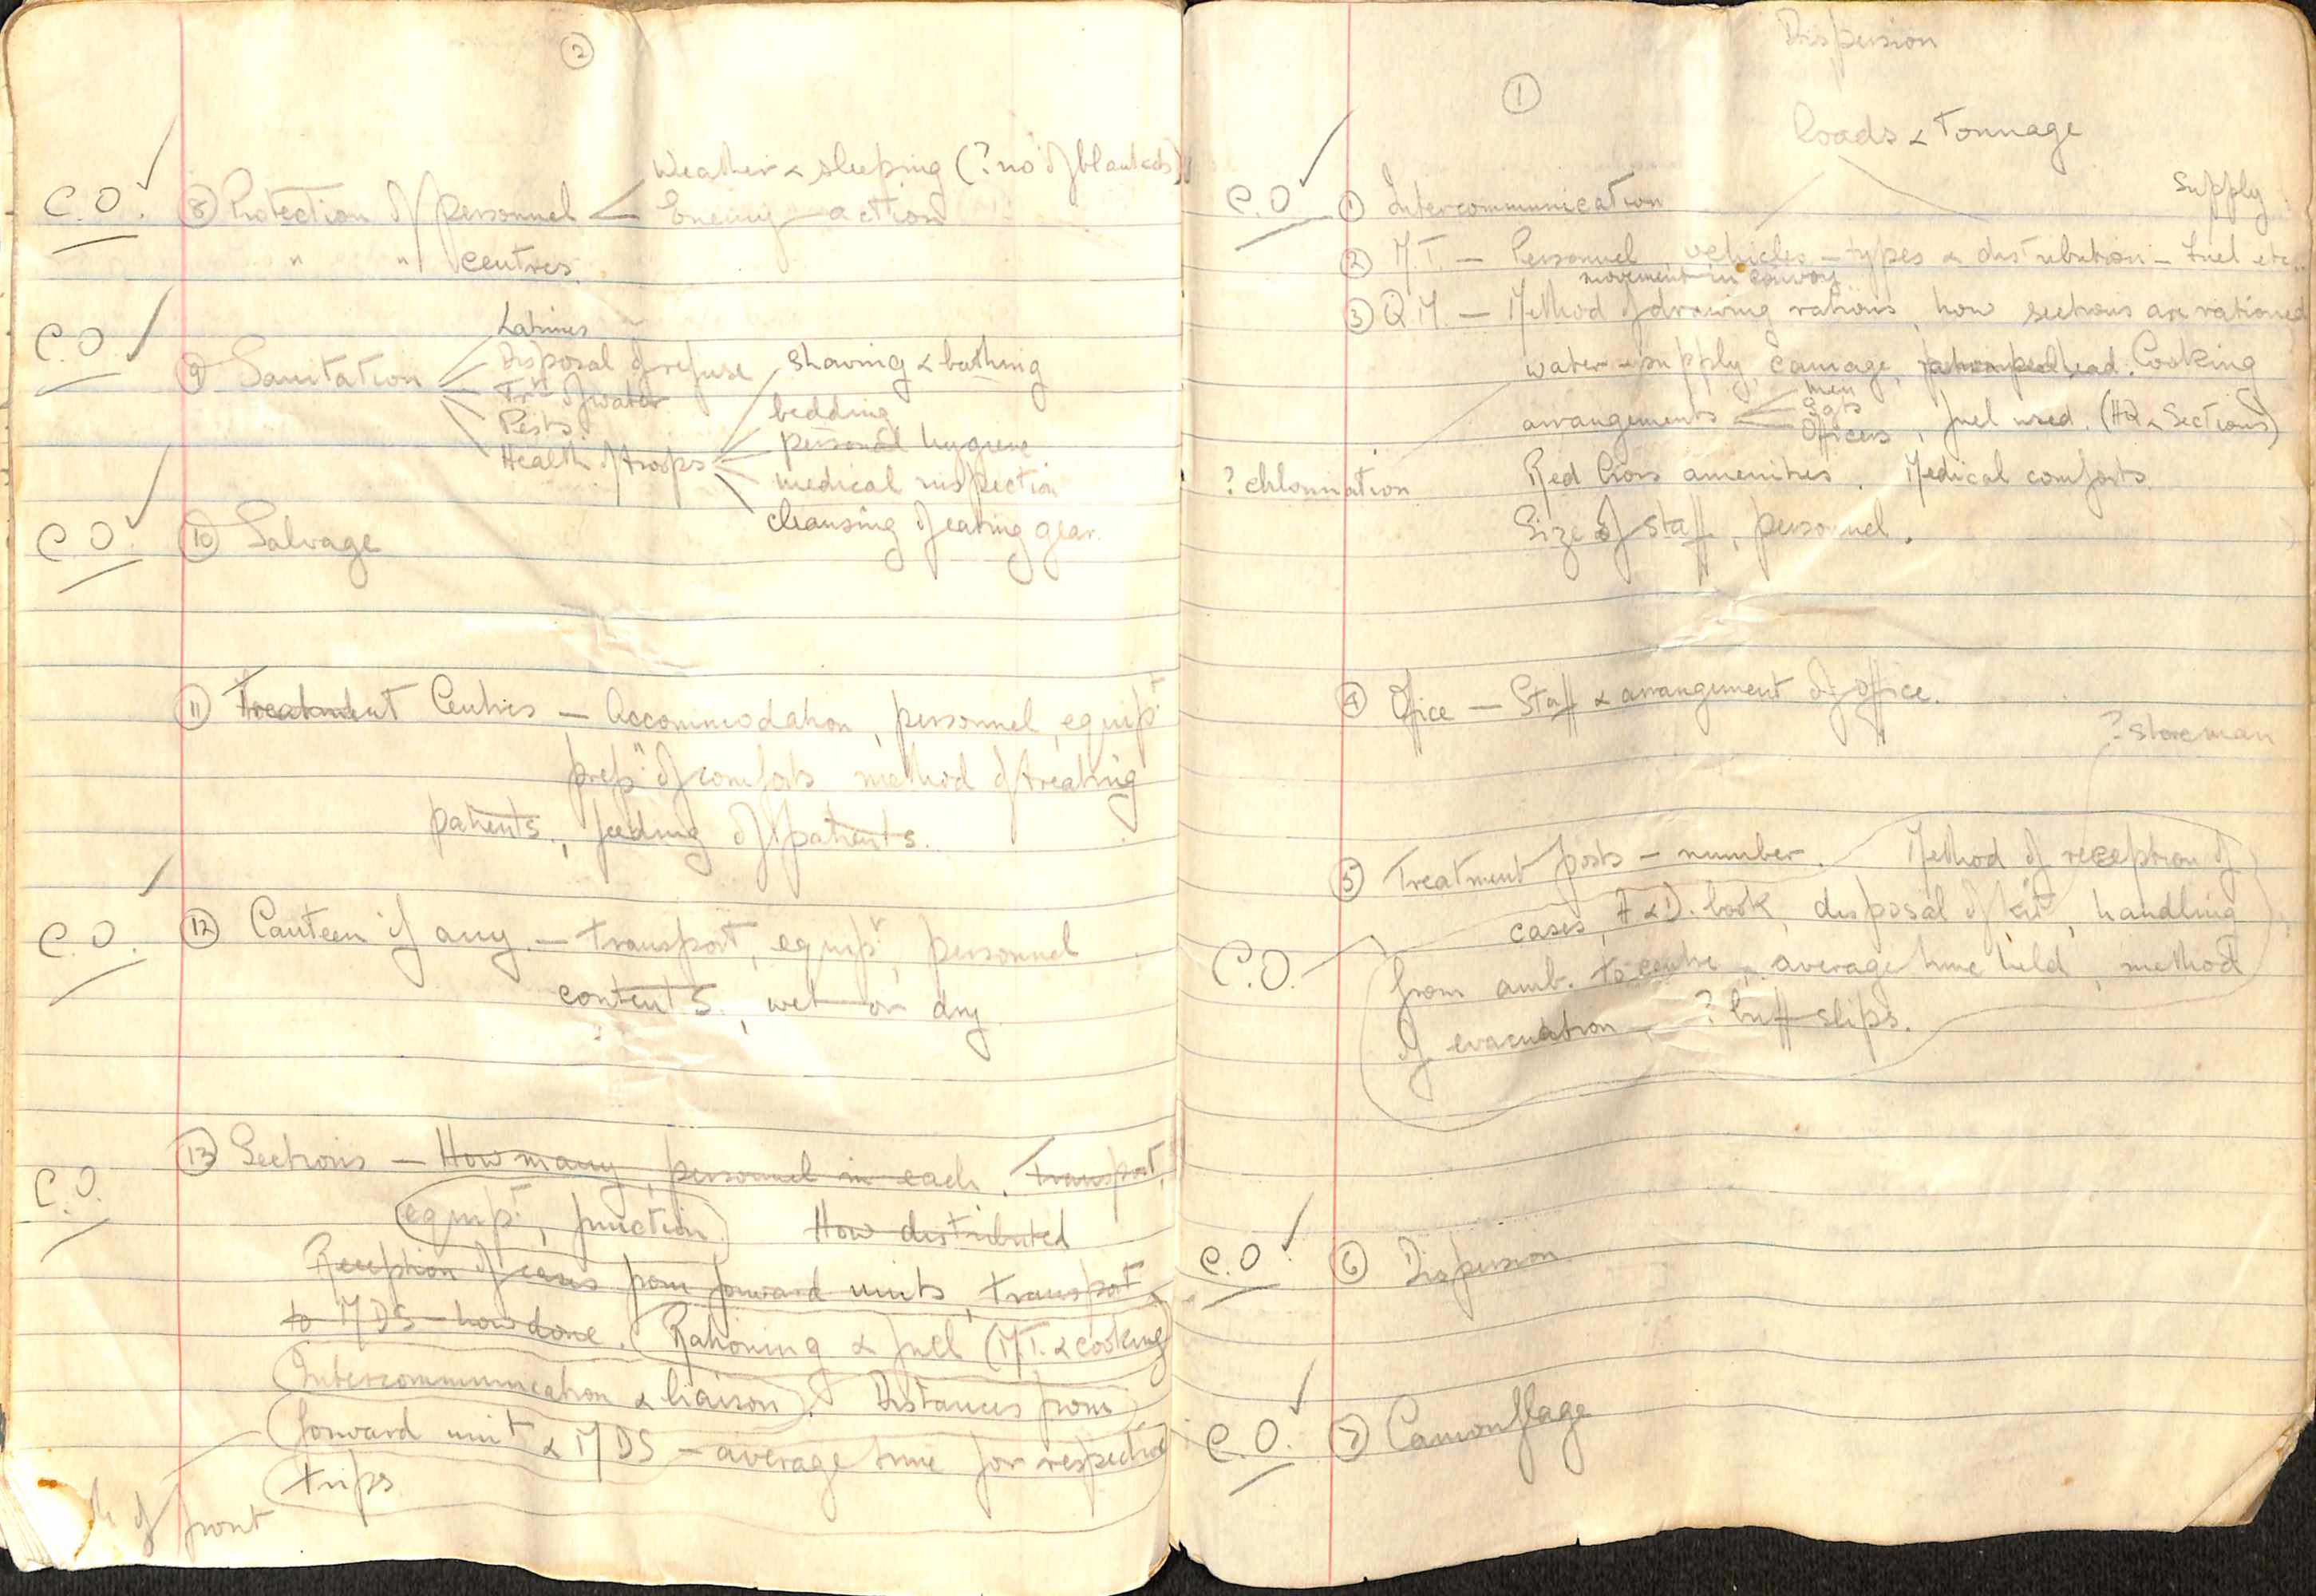 ②
C.O. ✓ ⑧ Protection of personnel < Weather & sleeping (? no of blankets)
Enemy action
" " centres
C.O. ✓ ⑨ Sanitation
Latrines
Disposal of refuse
Trt of water
Pests
Health of troops
shaving & bathing
bedding
personal hygiene
medical inspection
cleansing of eating gear.
C.O. ✓ ⑩ Salvage
⑪ Treatment Centres — Accommodation, personnel, equipt
prepn of comforts method of treating
patients, feeding of patients.
C.O. ✓ ⑫ Canteen if any — transport, equipt, personnel
contents, wet or dry
C.O. ⑬ Sections — How many, personnel in each, Transport,
equipt, function. How distributed
Reception of cases from forward units, transport
to MDS — how done. Rationing & fuel (MT. & cooking
Intercommunication & liaison). Distances from
forward unit & MDS — average time for respective
trips
of front
Dispersion
①
Loads & Tonnage
C.O. ✓ ① Intercommunication
Supply
② M.T. — Personnel, vehicles — types & distribution — Fuel etc.
movement in convoy
③ Q.M. — Method of drawing rations, how sections are rationed
water — supply, carriage, per head. Cooking
arrangements < men
Sgts
Officers, fuel used. (HQ & Sections)
? chlorination
Red Cross amenities. Medical comforts
Size of staff, personnel.
④ Office — Staff & arrangement of office.
? storeman
⑤ Treatment posts — number. Method of reception of
cases, A & D. book, disposal of kit, handling
C.O. from amb. to centre, average time held, method
of evacuation, ? buff slips.
C.O. ✓ ⑥ Dispersion
C.O. ✓ ⑦ Camouflage